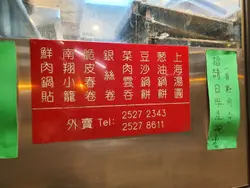 上海湯圓
葱油鍋餅
豆沙鍋餅
菜肉雲吞
銀絲卷
脆皮春卷
南翔小籠
鮮肉鍋貼
外賣 Tel: 2527 2343
2527 8611